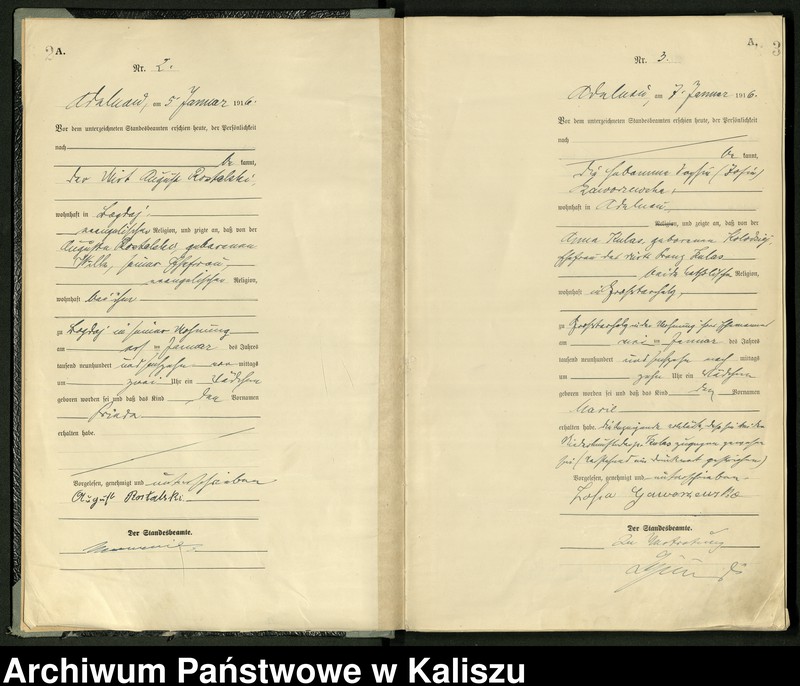 2 A.
Nr. 2.
Adelnau, am 5 Januar 1916.
Vor dem unterzeichneten Standesbeamten erschien heute, der Persönlichkeit
nach
be kannt,
der Wirt August Rostalski,
wohnhaft in Bogdaj
evangelischer Religion, und zeigte an, daß von der
Augusta Rostalski, geborenen
seiner Ehefrau
evangelischer Religion,
wohnhaft bei ihm
zu Bogdaj in seiner Wohnung
am Januar des Jahres
tausend neunhundert und sechzehn vor mittags
um zwei Uhr ein Mädchen
geboren worden sei und daß das Kind den Vornamen
Frieda
erhalten habe.
Vorgelesen, genehmigt und unterschrieben
August Rostalski
Der Standesbeamte.
A. 3
Nr. 3.
Adelnau, am 7. Januar 1916.
Vor dem unterzeichneten Standesbeamten erschien heute, der Persönlichkeit
nach
be kannt,
die Hebamme Sophie (Zofia)
Gaworzewska,
wohnhaft in Adelnau,
Religion, und zeigte an, daß von der
Anna Kulas, geborenen
Ehefrau des Wirt Franz Kulas
beide katholischer Religion,
wohnhaft in
zu in der Wohnung ihres Ehemannes
am zwei Januar des Jahres
tausend neunhundert und sechzehn nach mittags
um zehn Uhr ein Mädchen
geboren worden sei und daß das Kind den Vornamen
Marie
erhalten habe. Die Anzeigende erklärte, daß sie bei der
Niederkunft der p. Kulas zugegen gewesen
sei
Vorgelesen, genehmigt und unterschrieben.
Zofia Gaworzewska
Der Standesbeamte.
In Vertretung
Archiwum Państwowe w Kaliszu